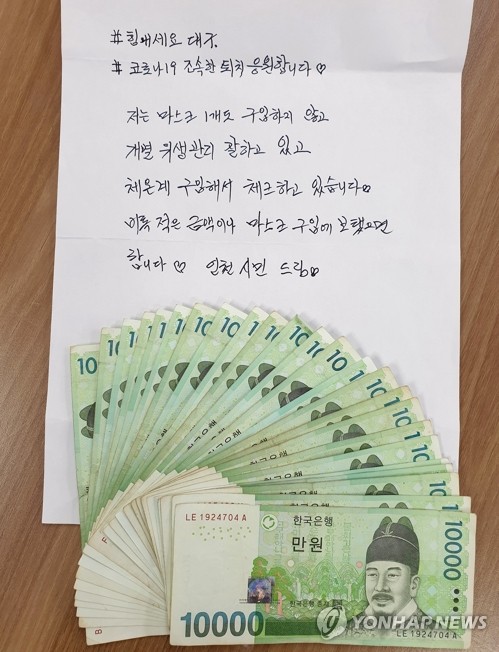 #힘내세요 대구.
#코로나19 조속한 퇴치 응원합니다♡
저는 마스크 1개도 구입하지 않고
개별 위생관리 잘하고 있고
체온계 구입해서 체크하고 있습니다.
비록 적은 금액이나 마스크 구입에 보탰으면
합니다♡ 인천 시민 드림♡
10
10
10
10
10
10
LE 1924704 A
한국은행
만원
10000
한국은행 총재
10000
LE 1924704 A
YONHAP NEWS